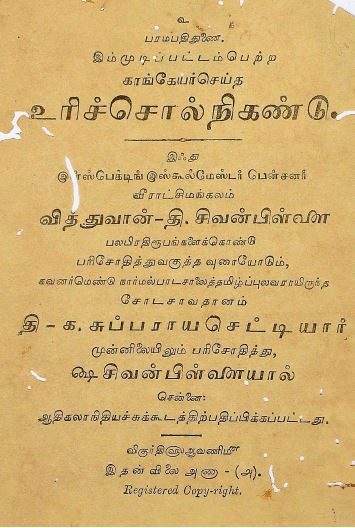 உ
பரமபதிதுணை.
இம்முடிப்பட்டம்பெற்ற
காங்கேயர்செய்த
உரிச்சொல்நிகண்டு.
இஃது
இன்ஸ்பெக்டிங்இஸ்கூல்மேஸ்டர் பென்சனர்
வீராட்சிமங்கலம்
வித்துவான்-தி. சிவன்பிள்ளை
பலபிரதிரூபங்களைக்கொண்டு
பரிசோதித்துவகுத்த வுரையோடும்,
கவனர்மெண்டு நார்மல்பாடசாலைத்தமிழ்ப்புலவராயிருந்த
சோடசாவதானம்
தி-க. சுப்பராயசெட்டியார்
முன்னிலையிலும் பரிசோதித்து,
ஷை சிவன்பிள்ளையால்
சென்னை:
ஆதிகலாநிதியச்சுக்கூடத்திற்பதிப்பிக்கப்பட்டது.
ஆவணிமீ
இதன் விலை அணா - (அ).
Registered Copy-right.